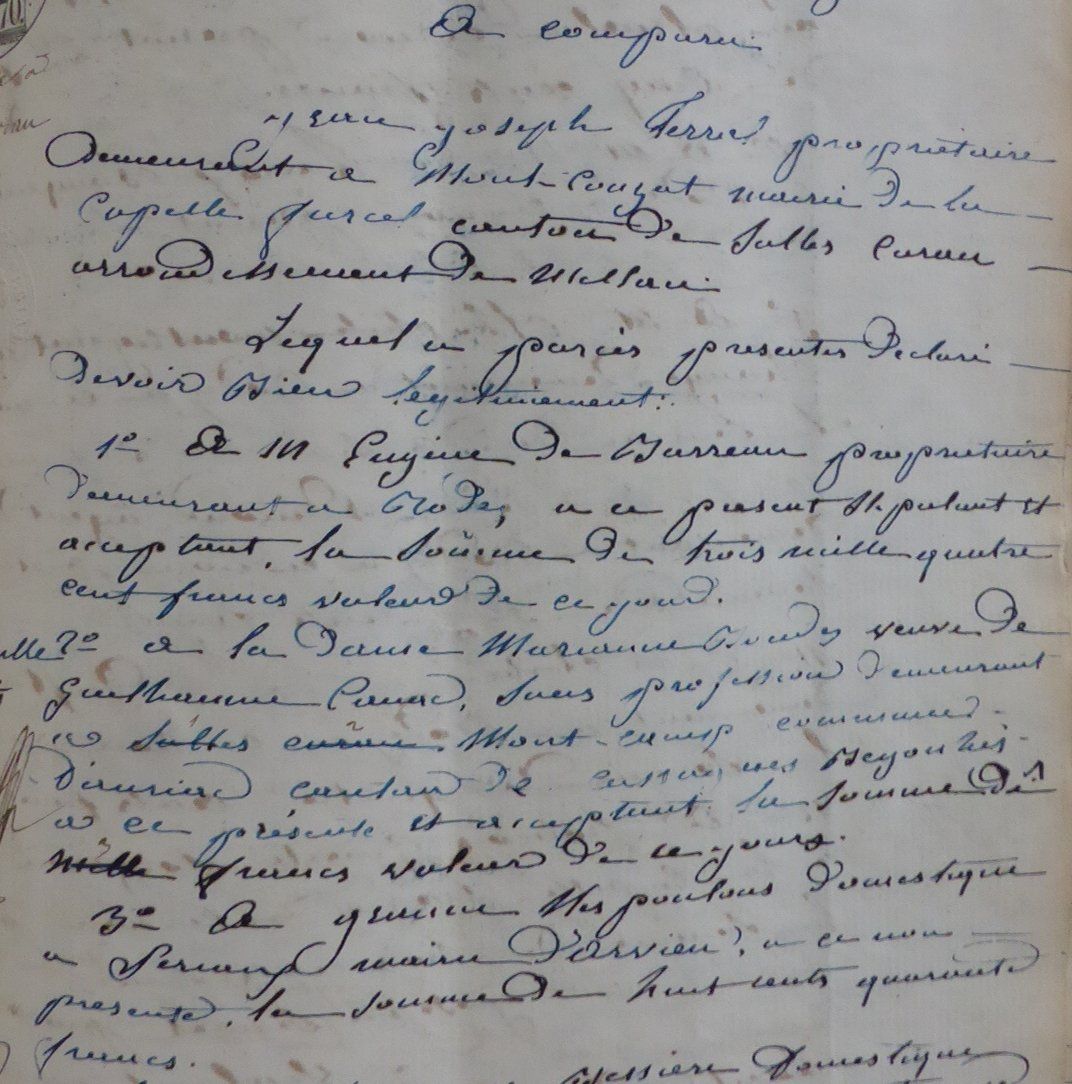 70
A comparu
Jean Joseph Ferrel propriétaire
demeurant a Mont-Couzat mairie de la
Capelle farcel canton de Salles Curan
arrondissement de Millau
Lequel a par ces presentes declaré
devoir Bien legitimement:
1º A M Eugène De Barreau propriétaire
demeurant a Rodez a ce present Stipulant et
acceptant, la Somme de trois mille quatre
cent francs valeur de ce jour.
2º a la Dame Marianne veuve de
Guilhaume Canac, Sans profession demeurant
a Salles curan Mont-camp commune
d'auriac canton de cassagnes Begonhès
a ce présente et acceptant la Somme de
mille francs valeur de ce jour.
3º A Jeanne domestique
a mairie D'Arvieu, a ce non
presente, la Somme de huit cents quarante
francs.
Domestique